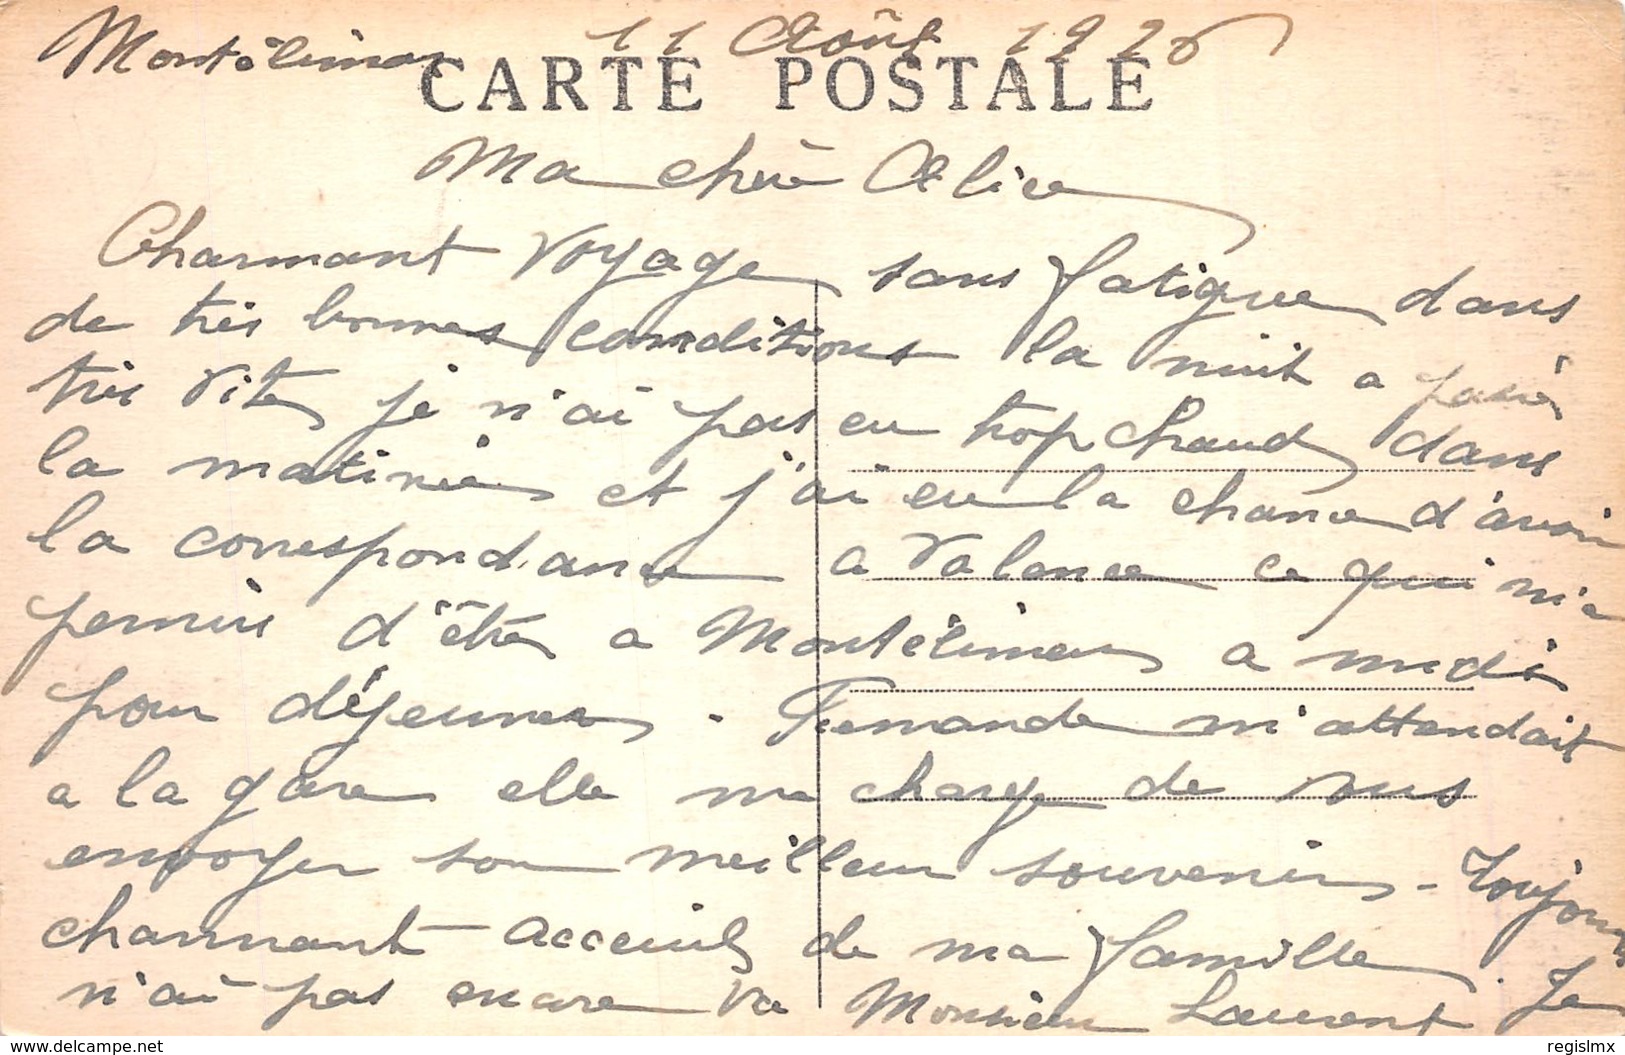 Montélimar 11 Août 1926
CARTE POSTALE
Ma chère Alice
Charmant voyage sans fatigue dans
de très bonnes conditions la nuit a passé
très vite, je n'ai pas eu trop chaud dans
la matinée et j'ai eu la chance d'avoir
la correspondance a Valence ce qui m'a
permis d'être a Montélimar a midi
pour déjeuner. Fernande m'attendait
a la gare elle me charge de vous
envoyer son meilleur souvenir - Toujours
charmant acceuil de ma famille. Je
n'ai pas encore vu Monsieur Laurent
www.delcampe.net
regislmx